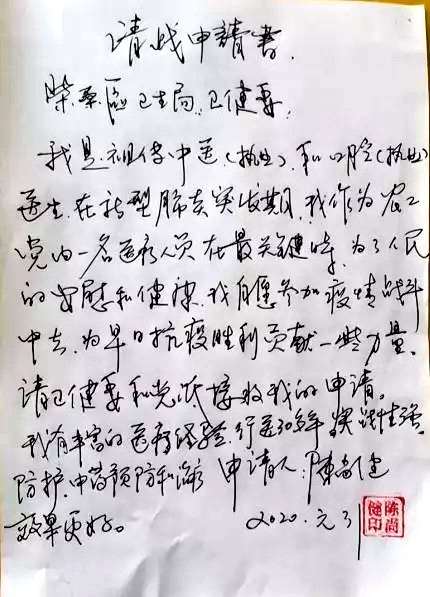 请战申請書
柴桑區卫生局、卫健委：
我是祖传中医(执业)和口腔(执业)
医生.在新型肺炎突发期.我作为农工
党内一名医疗人员在最关键時.为了人民
的安慰和健康.我自愿参加疫情战斗
中去.为早日抗疫胜利贡献一些力量.
请卫健委和党派接收我的申请。
我有丰富的医疗经验.行医30年 实践性强
防护.中药预防和治疗 申请人:陳尚健
效果更好。 2020.元
陈尚
健印